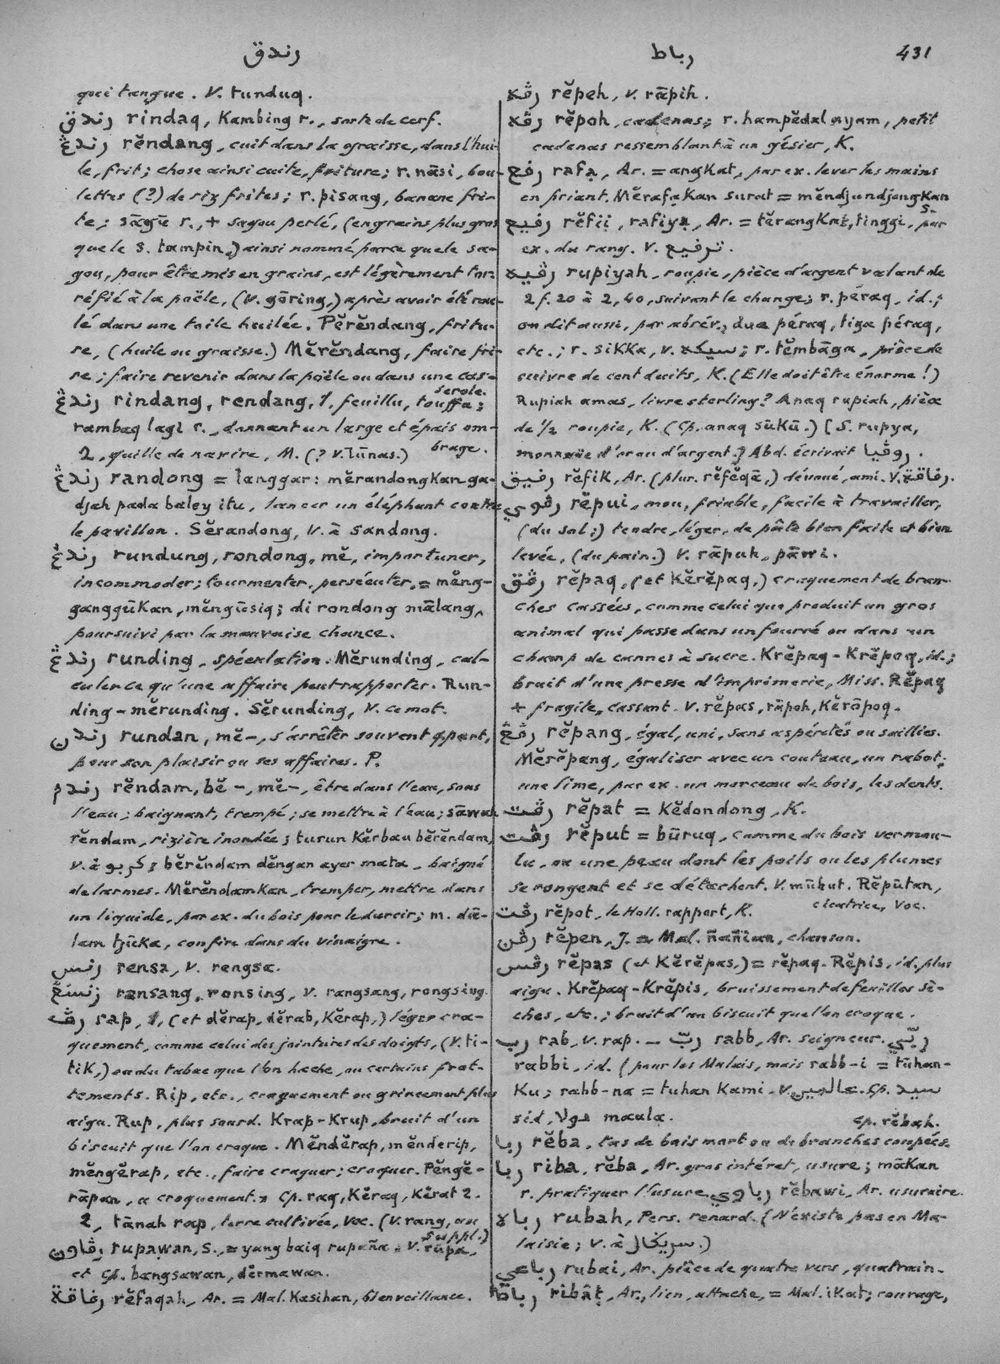 رندق
رباط
431
quei tangue. V. tunduq.
رندق rindaq, Kambing r., sorte de cerf.
رندڠ rĕndang, cuit dans la graisse, dans l'hui-
le, frit; chose ainsi cuite, friture; r. nāsi, bou-
lettes (?) de riz frites; r. pisang, banane fri-
te; sāgū r., + sagou perlé, (en grains plus gros
que le s. tampin,) ainsi nommé parce que le sa-
gou, pour être mis en grains, est légèrement tor-
réfié à la poële, (v. gōring,) après avoir été rou-
lé dans une toile huilée. Pĕrĕndang, fritu-
re, (huile ou graisse.) Mĕrĕndang, faire fri-
re; faire revenir dans la poële ou dans une cas-
serole.
رندڠ rindang, rendang, 1, feuillu, touffu;
rambaq lagi r., donnant un large et épais om-
brage.
2, quille de navire, M. (? v. lūnas.)
رندڠ randong = langgar: mĕrandongKan ga-
djah pada baley itu, lancer un éléphant contre
le pavillon. Sĕrandong, v. à sandong.
رندڠ rundung, rondong, mĕ-, importuner,
incommoder; tourmenter, persécuter, = mĕng-
ganggūKan, mĕngūsiq; di rondong mālang,
poursuivi par la mauvaise chance.
رندڠ runding, spéculation. Mĕrunding, cal-
culer ce qu'une affaire peut rapporter. Run-
ding-mĕrunding. Sĕrunding, v. ce mot.
رندن rundan, mĕ-, s'arrêter souvent q. part,
pour son plaisir ou ses affaires. P.
رندم rĕndam, bĕ-, mĕ-, être dans l'eau, sous
l'eau; baignant, trempé; se mettre à l'eau; sāwah
rĕndam, rizière inondée; turun Kĕrbau bĕrĕndam,
v. à كربو; bĕrĕndam dĕngan ayer mata, baigné
de larmes. MĕrĕndamKan, tremper, mettre dans
un liquide, par ex. du bois pour le durcir; m. dā-
lam tjūka, confire dans du vinaigre.
رنس rensa, v. rengsa.
رنسڠ ransang, ronsing, v. rangsang, rongsing.
رڤ rap, 1, (et dĕrap, dĕrab, Kĕrap,) léger cra-
quement, comme celui des jointures des doigts, (v. ti-
tiK,) ou du tabac que l'on hache, ou certains frot-
tements. Rip, etc., craquement ou grincement plus
aigu. Rup, plus sourd. Krap-Krup, bruit d'un
biscuit que l'on croque. Mĕndĕrap, mĕnderip,
mĕngĕrap, etc., faire craquer; croquer. Pĕngĕ-
rāpan, a croquement. Cp. raq, Kĕraq, Kĕrat 2.
2, tānah rap, terre cultivée, Voc. (v. rang, au
suppl.)
رڤاون rupawan, S., = yang baiq rupaña. v. rūpa,
et cp. bangsawan, dĕrmawan.
رفاقة rĕfaqah, Ar. = Mal. Kasihan, bienveillance.
رڤه rĕpeh, v. rāpih.
رڤه rĕpoh, cadenas; r. hampĕdal ayam, petit
cadenas ressemblant à un gésier, K.
رفع rafa, Ar. = angKat, par ex. lever les mains
en priant. MĕrafaKan surat = mĕndjundjongKan
S.
رفيع rĕfii, rafiya, Ar. = tĕrangKat, tinggi, par
ex. du rang. V. ترفيع.
رڤيه rupiyah, roupie, pièce d'argent valant de
2 f. 20 à 2,40, suivant le change; r. pēraq, id.;
on dit aussi, par abrév., dua pēraq, tiga pēraq,
etc.; r. sikka, v. سيكه; r. tĕmbāga, pièce de
cuivre de cent decits, K. (Elle doit être énorme!)
Rupiah amas, livre sterling? Anaq rupiah, pièce
de ½ roupie, K. (Cp. anaq sūkū.) [S. rupya,
monnaie d'or ou d'argent.] Abd. écrivait روڤيا.
رفيق rĕfik, Ar. (plur. rĕfĕqā,) dévoué, ami. V. رفاقة.
رڤوي rĕpui, mou, friable, facile à travailler,
(du sol;) tendre, léger, de pâte bien faite et bien
levée, (du pain.) V. rāpuh, pāwi.
رڤق rĕpaq, (et Kĕrĕpaq,) craquement de bran-
ches cassées, comme celui que produit un gros
animal qui passe dans un fourré ou dans un
champ de cannes à sucre. Krĕpaq-Krĕpoq, id.;
bruit d'une presse d'imprimerie, Miss. Rĕpaq
+ fragile, cassant. V. rĕpas, rāpoh, Kĕrōpoq.
رڤڠ rĕpang, égal, uni, sans aspérités ou saillies.
Mĕrĕpang, égaliser avec un couteau, un rabot,
une lime, par ex. un morceau de bois, les dents.
رڤت rĕpat = Kĕdondong, K.
رڤت rĕput = būruq, comme du bois vermou-
lu, ou une peau dont les poils ou les plumes
se rongent et se détachent. V. mūhut. Rĕpūtan,
cicatrice, Voc.
رڤت rĕpot, le Holl. rapport, K.
رڤن rĕpen, J. = Mal. ñañian, chanson.
رڤس rĕpas (et Kĕrĕpas,) = rĕpaq. Rĕpis, id. plus
aigu. Krĕpaq-Krĕpis, bruissement de feuilles sè-
ches, etc.; bruit d'un biscuit que l'on croque.
رب rab, v. rap. — ربّ rabb, Ar. seigneur. ربّي
rabbi, id. (pour les Malais, mais rabb-i = tūhan-
Ku; rabb-na = tuhan Kami. V. عالمين. Cp. سيد
sid, مولا maula.
Cp. rĕbah.
ربا rĕba, tas de bois mort ou de branches coupées.
ربا riba, rĕba, Ar. gros intéret, usure; māKan
r. pratiquer l'usure. رباوي rĕbawi, Ar. usuraire.
رباه rubah, Pers. renard. (N'existe pas en Ma-
laisie; v. à سريڬال.)
رباعي rubai, Ar. pièce de quatre vers, quatrain.
رباط ribât, Ar., lien, attache, = Mal. iKat; courage,